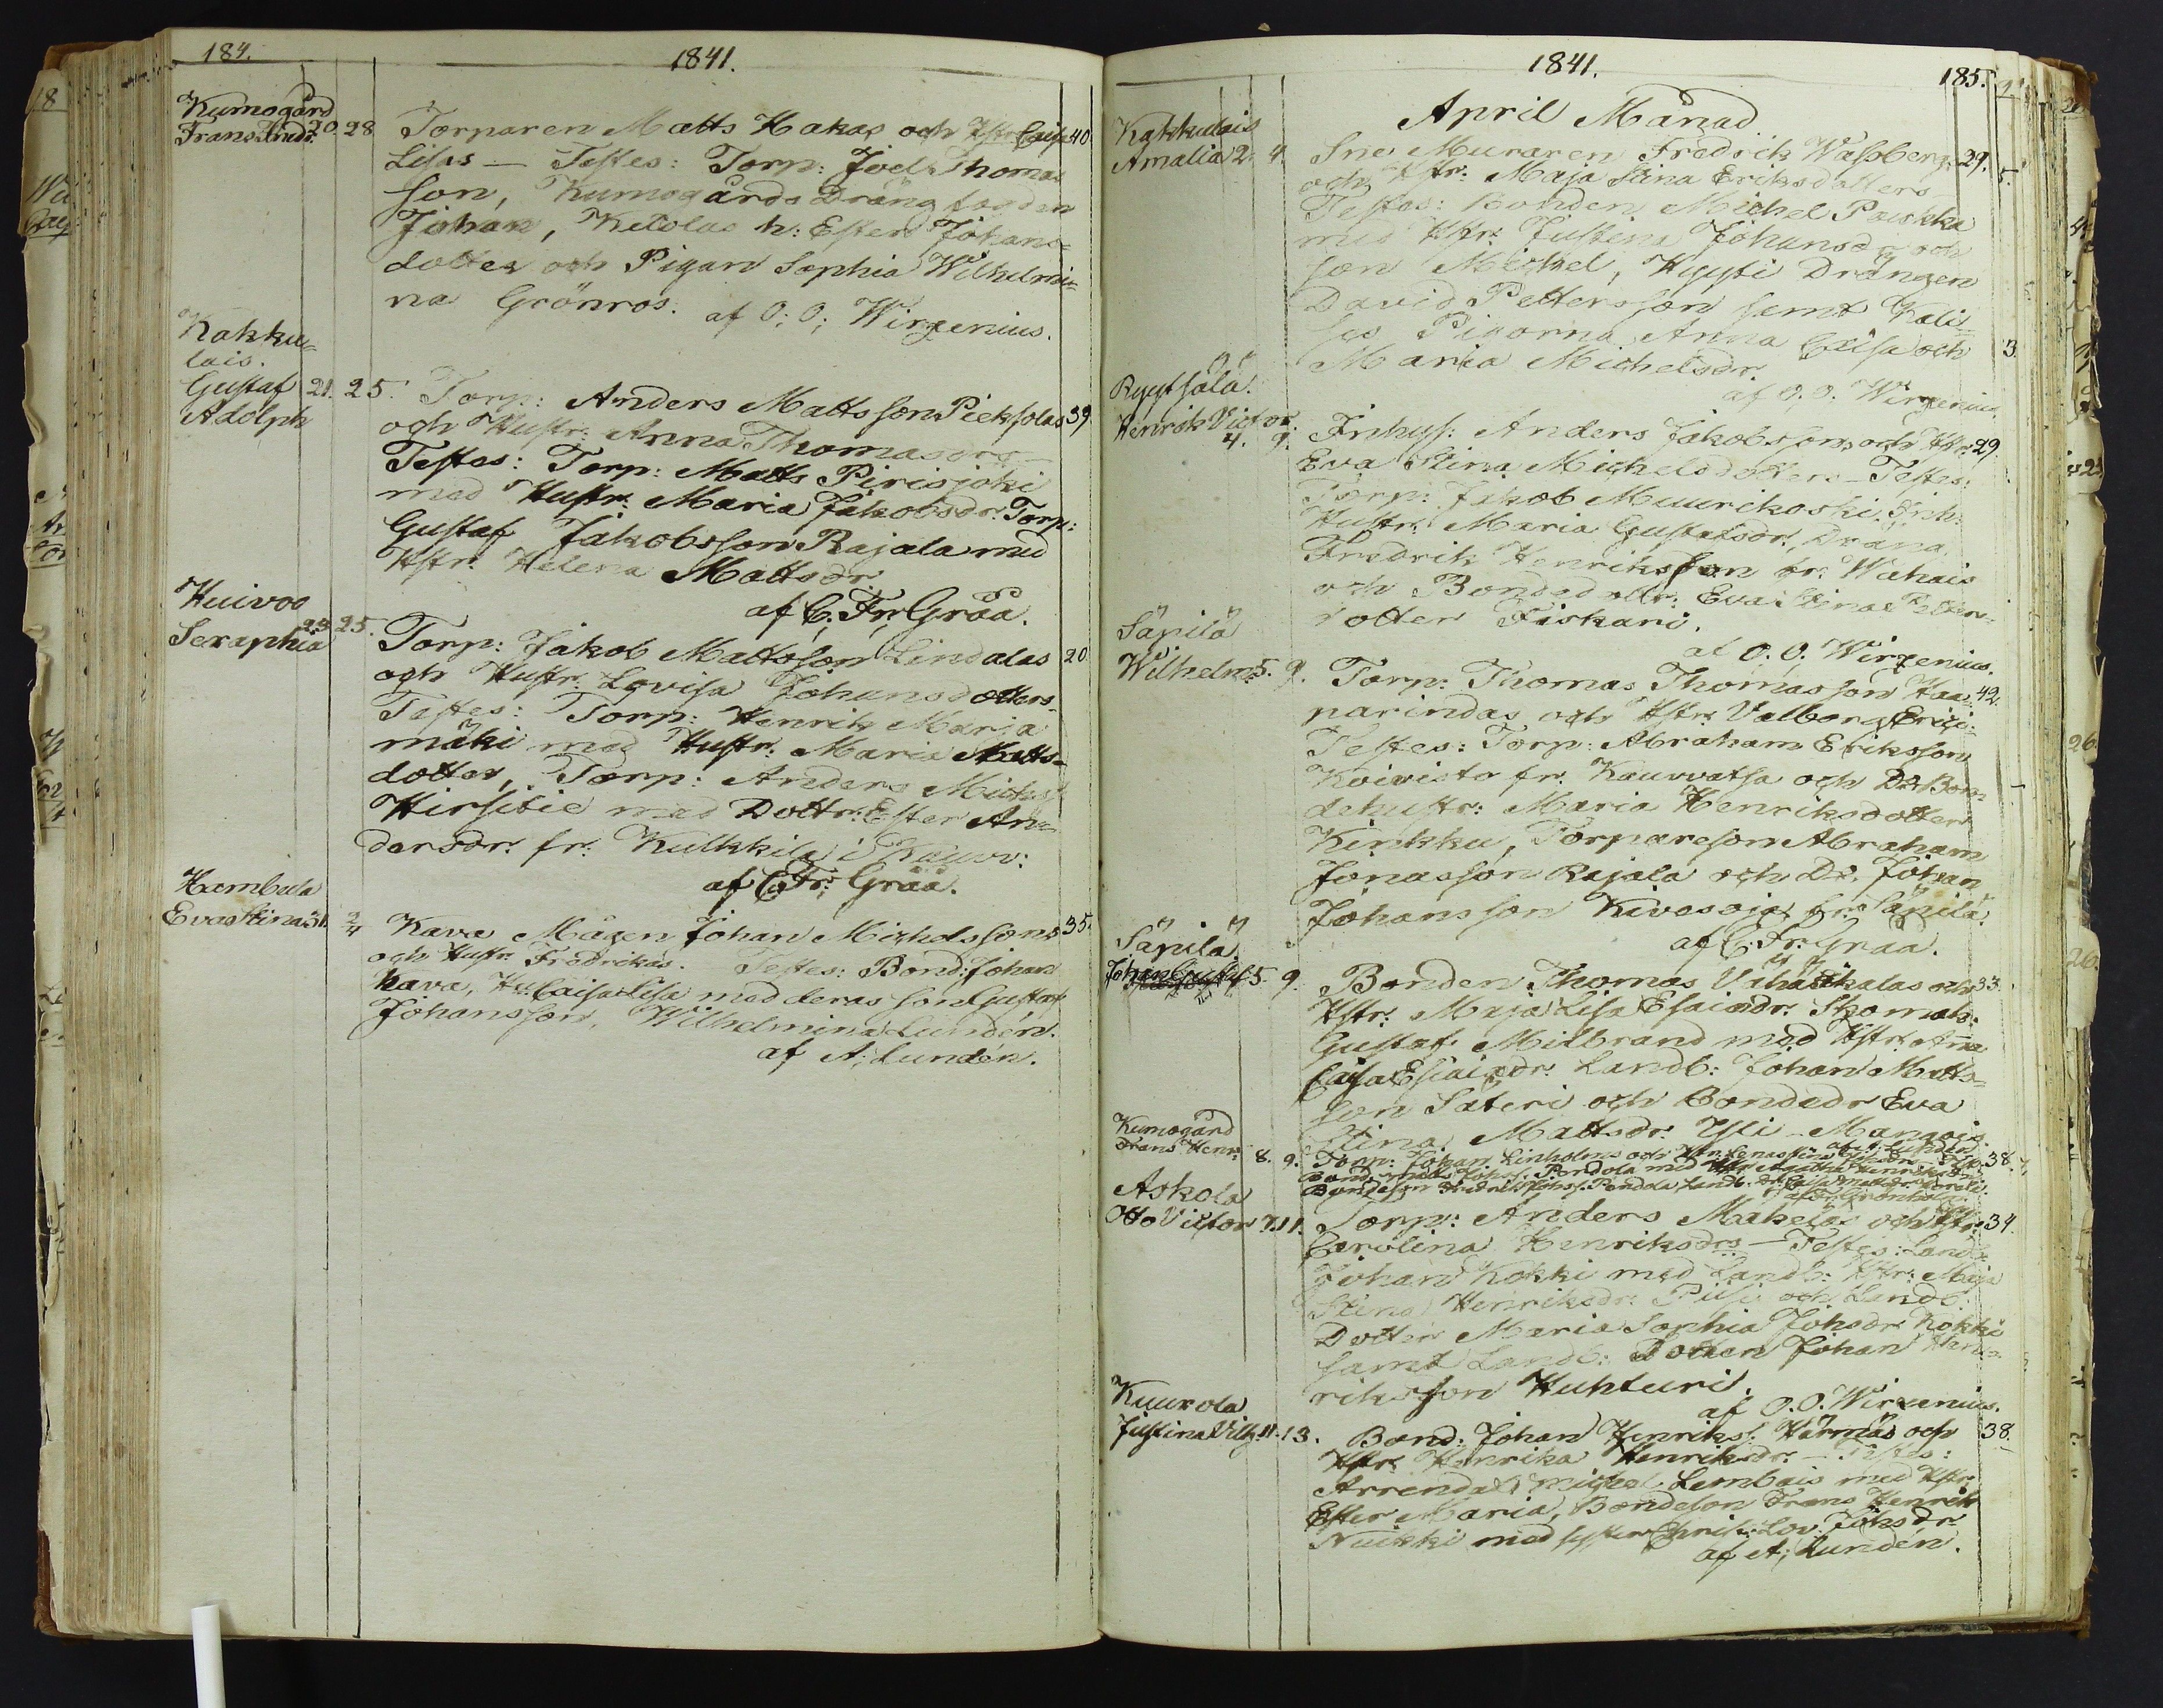 184.
1841.
Kumogård
Frans Fridr. 20. 28 Torparen Matts Hakas och Hstr Caisa 40.
Lisas — Testes: Torp: Joel Thomas
son, Kumogårds Drängfogden
Johan, Ketolas h: Ester Johans=
dotter och Pigan Sophia Wilhelmi=
na Grönros. af O; O; Wirzenius.
Kakku=
lais.
Gustaf 21. 25. Torp: Anders Mattsson Pieksolas 39
Adolph
och Hustr: Anna Thomasdrs —
Testes: Torp: Matts Pirisjoki
med Hustr. Maria Jakobsdr. Torp:
Gustaf Jakobsson Rajala med
Hstr. Helena Mattsdr.
af C; Fr; Gråå.
Huivoo
Seraphia 23. 25. Torp: Jakob Mattsson Lindalas 20
och Hustr. Lovisa Johansdotters.
Testes: Torp: Henrik Marja
mäki med Hustr. Maria Matts=
dotter, Torp: Anders Mickelss
Hirsitie med Dottr: Ester An=
dersdr. fr. Kulkkila i Kauvv:
af C; Fr; Gråå.
Hambula
Eva Stina 31. 2/4 Kava Mågen Johan Michelssons 35.
och Hustr. Fredrikas. Testes: Bond: Johan
Kava, Hu. Caisa Lisa med deras son Gustaf
Johansson, Wilhelmina Lundén.
af A; Lundén.
1841.
185.
April Månad
Kakkulais
Amalia 2. 4. Sne Muraren Fredrik Wassberg 29.
och Hstr: Maja Stina Eriksdotters —
Testes: Bonden Michel Paiskka
med Hstr. Justina Johansdr och
son Michel, Hyysti Drängen
David Pettersson samt Kali
ses Pigorna Anna Caisa och
Maria Michelsdr.
af O. O. Wirzenius.
Ryytsälä.
Henrik Victor.
4. 9. Inhys: Anders Jakobssons och Hstr. 29
Eva Stina Michelsdotters — Testes:
Torp: Jakob Muurikoski. Inh:
Hustr. Maria Gustafsdr. Dräng
Fredrik Henriksson fr: Wahais
och Bondedottr. Eva Stina Petters=
dotter Fiskari.
af O. O. Wirzenius.
Säpilä
Wilhelm 5. 9. Torp: Thomas Thomasson Haa= 42.
parindas och Hstr. Valborg Erici.
Testes: Torp: Abraham Eriksson
Koivisto fr. Kauvvatsa och Dr Bon=
dehustr: Maria Henriksdotter
Kinkku, Torpareson Abraham
Jonasson Rajala och Dr. Johan
Johansson Kivesoja fr. Säpilä.
af C. Fr. Gråå.
Säpilä.
Johan Gustaf 5. 9. Bonden Thomas Vähätkalas och 33.
Hstr: Maja Lisa Esaiædr. Skomak:
Gustaf Milbrand med Hstr. Anna
Caisa Esaiædr. Landb: Johan Matts=
son Säteri och Bondedr Eva
Stina Mattsdr. Ysti-Mangois.
af A. Lundén.
Kumogård
Frans Henr: 8. 9. Torp: Johan Linholms och 38.
Bond. Matts Johss. Pendola med Hstr Agatha Henriksdr
Bondeson Fredrik Johss. Pendola, Landb. dr. Caisa Mattsdr
Askola
Otto Victor 7. 11. Torp: Anders Mäkeläs och Hstr: 34
Carolina Henriksdrs — Testes: Landb
Johan Kokki med Landb: Hstr: Maja
Stina Henriksdr: Piisi och Landb:
Dotter Maria Sophia Johsdr Kokki
samt Landb: Sonen Johan Hen=
riksson Huhturi.
af O. O. Wirzenius.
Kuurola
Justina Vilh: 11. 13. Bond: Johan Henrikss. Härmäs och 38.
Hstr. Henrika Henriksdr. — Testes:
Arrendat: Michel Lembais med Hstr.
Ester Maria, Bondeson Frans Henrik
Nuikki med syster Christ: Lov. Johsdr.
af A; Lundén.